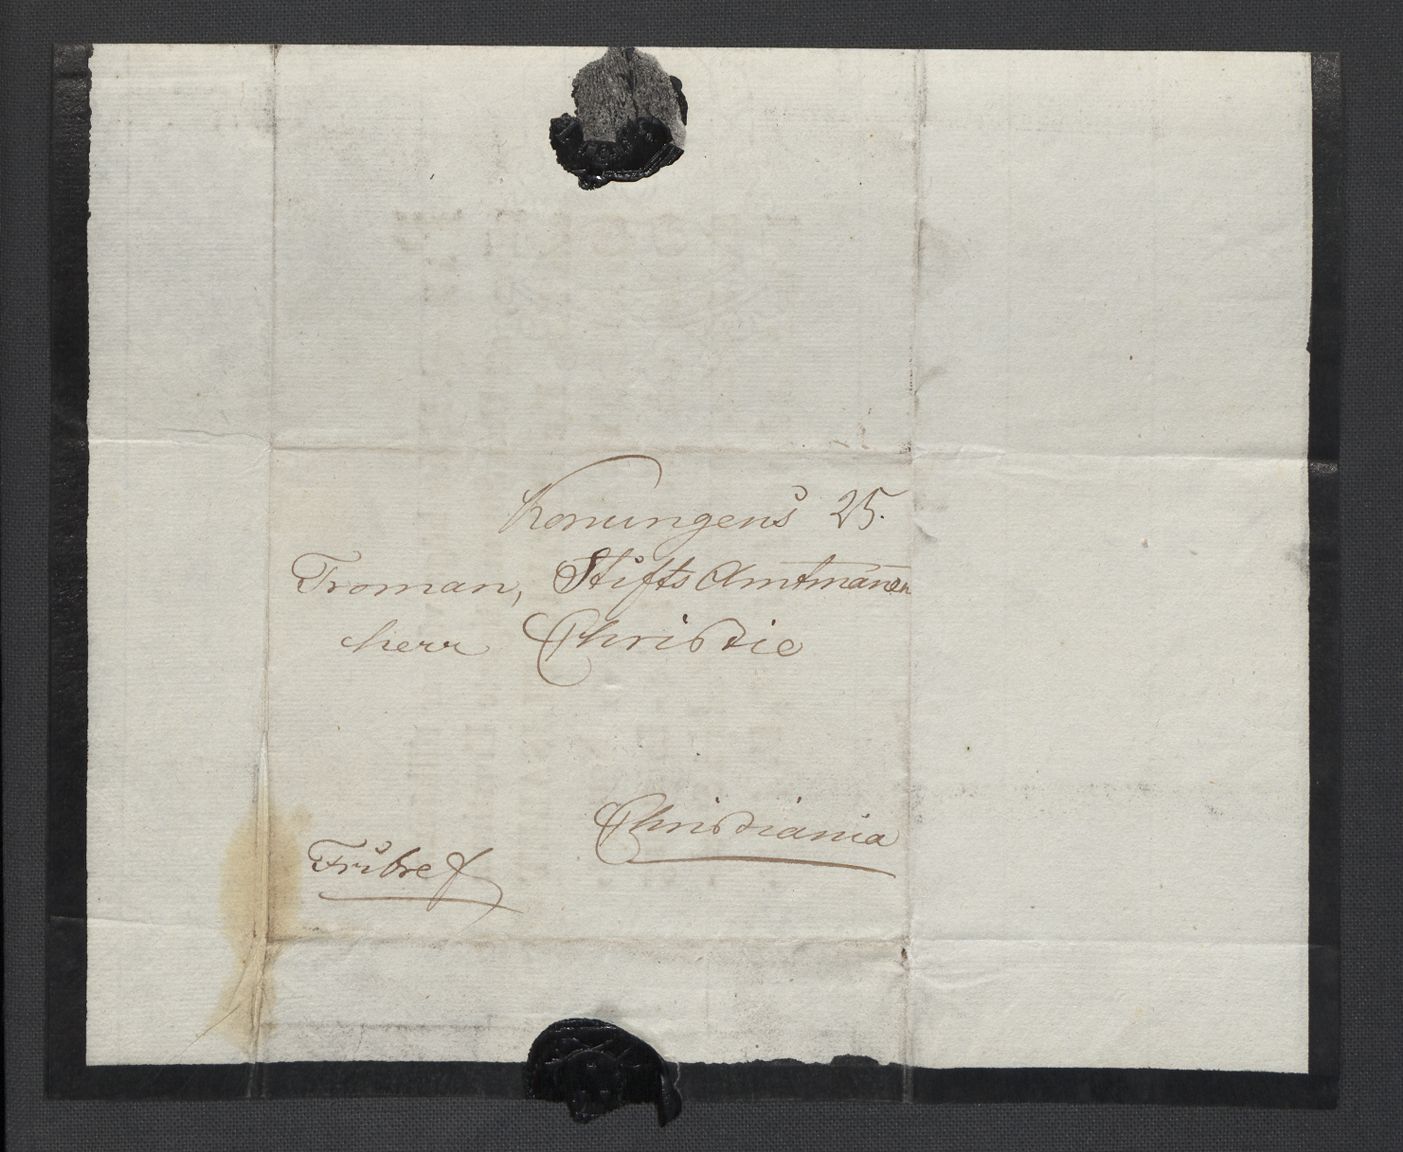 Konungens 25.
Troman, Stifts Amtmannen
herr Christie
Christiania
Fribref